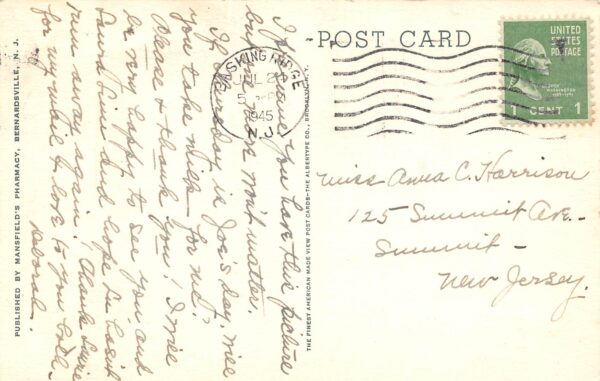 POST CARD
UNITED STATES POSTAGE
1 CENT 1
BASKING RIDGE
JUL 2
5 PM
1945
N.J.
Miss Anna C. Harrison
125 Summit Ave.
Summit
New Jersey.
I you have this picture
but won't matter.
If Thursday is Joe's day, will
you take milk for me?
Please & thank you! I will
be very happy to see you and
and hope
run away again. Thank
for my while & love to you both
PUBLISHED BY MANSFIELD'S PHARMACY, BERNARDSVILLE, N. J.
THE FINEST AMERICAN MADE VIEW POST CARDS—THE ALBERTYPE CO., BROOKLYN, N. Y.